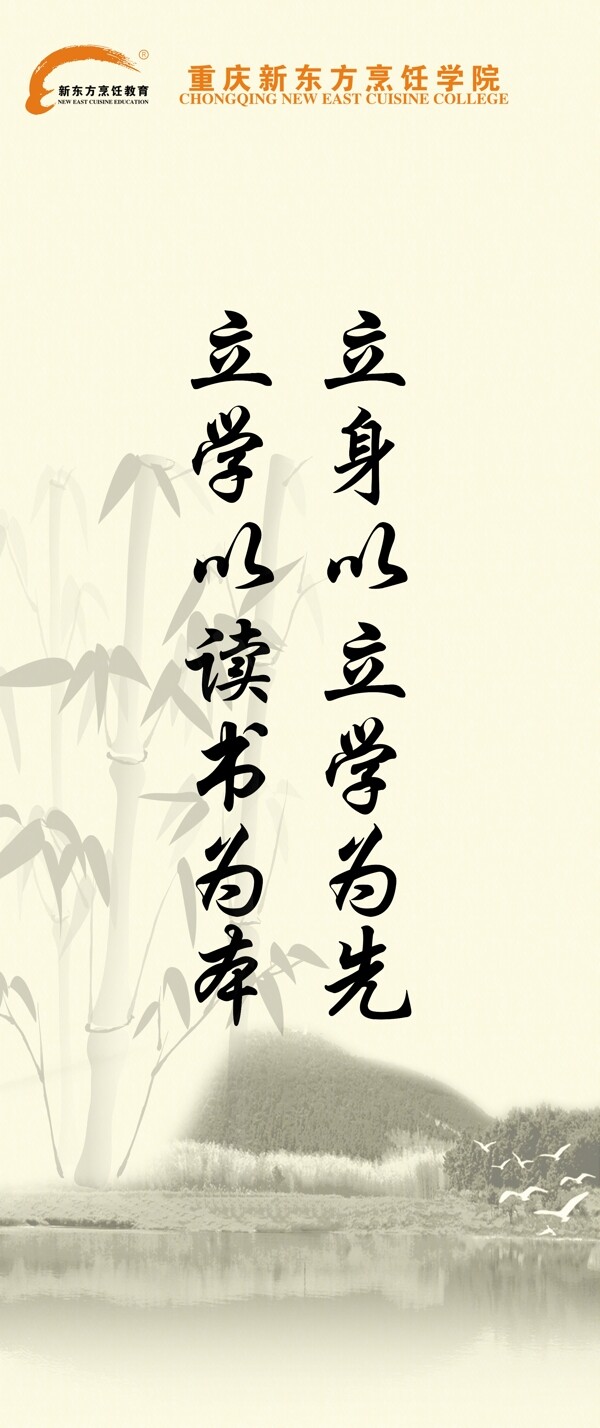 新东方烹饪教育
NEW EAST CUISINE EDUCATION
重庆新东方烹饪学院
CHONGQING NEW EAST CUISINE COLLEGE
立身以立学为先
立学以读书为本